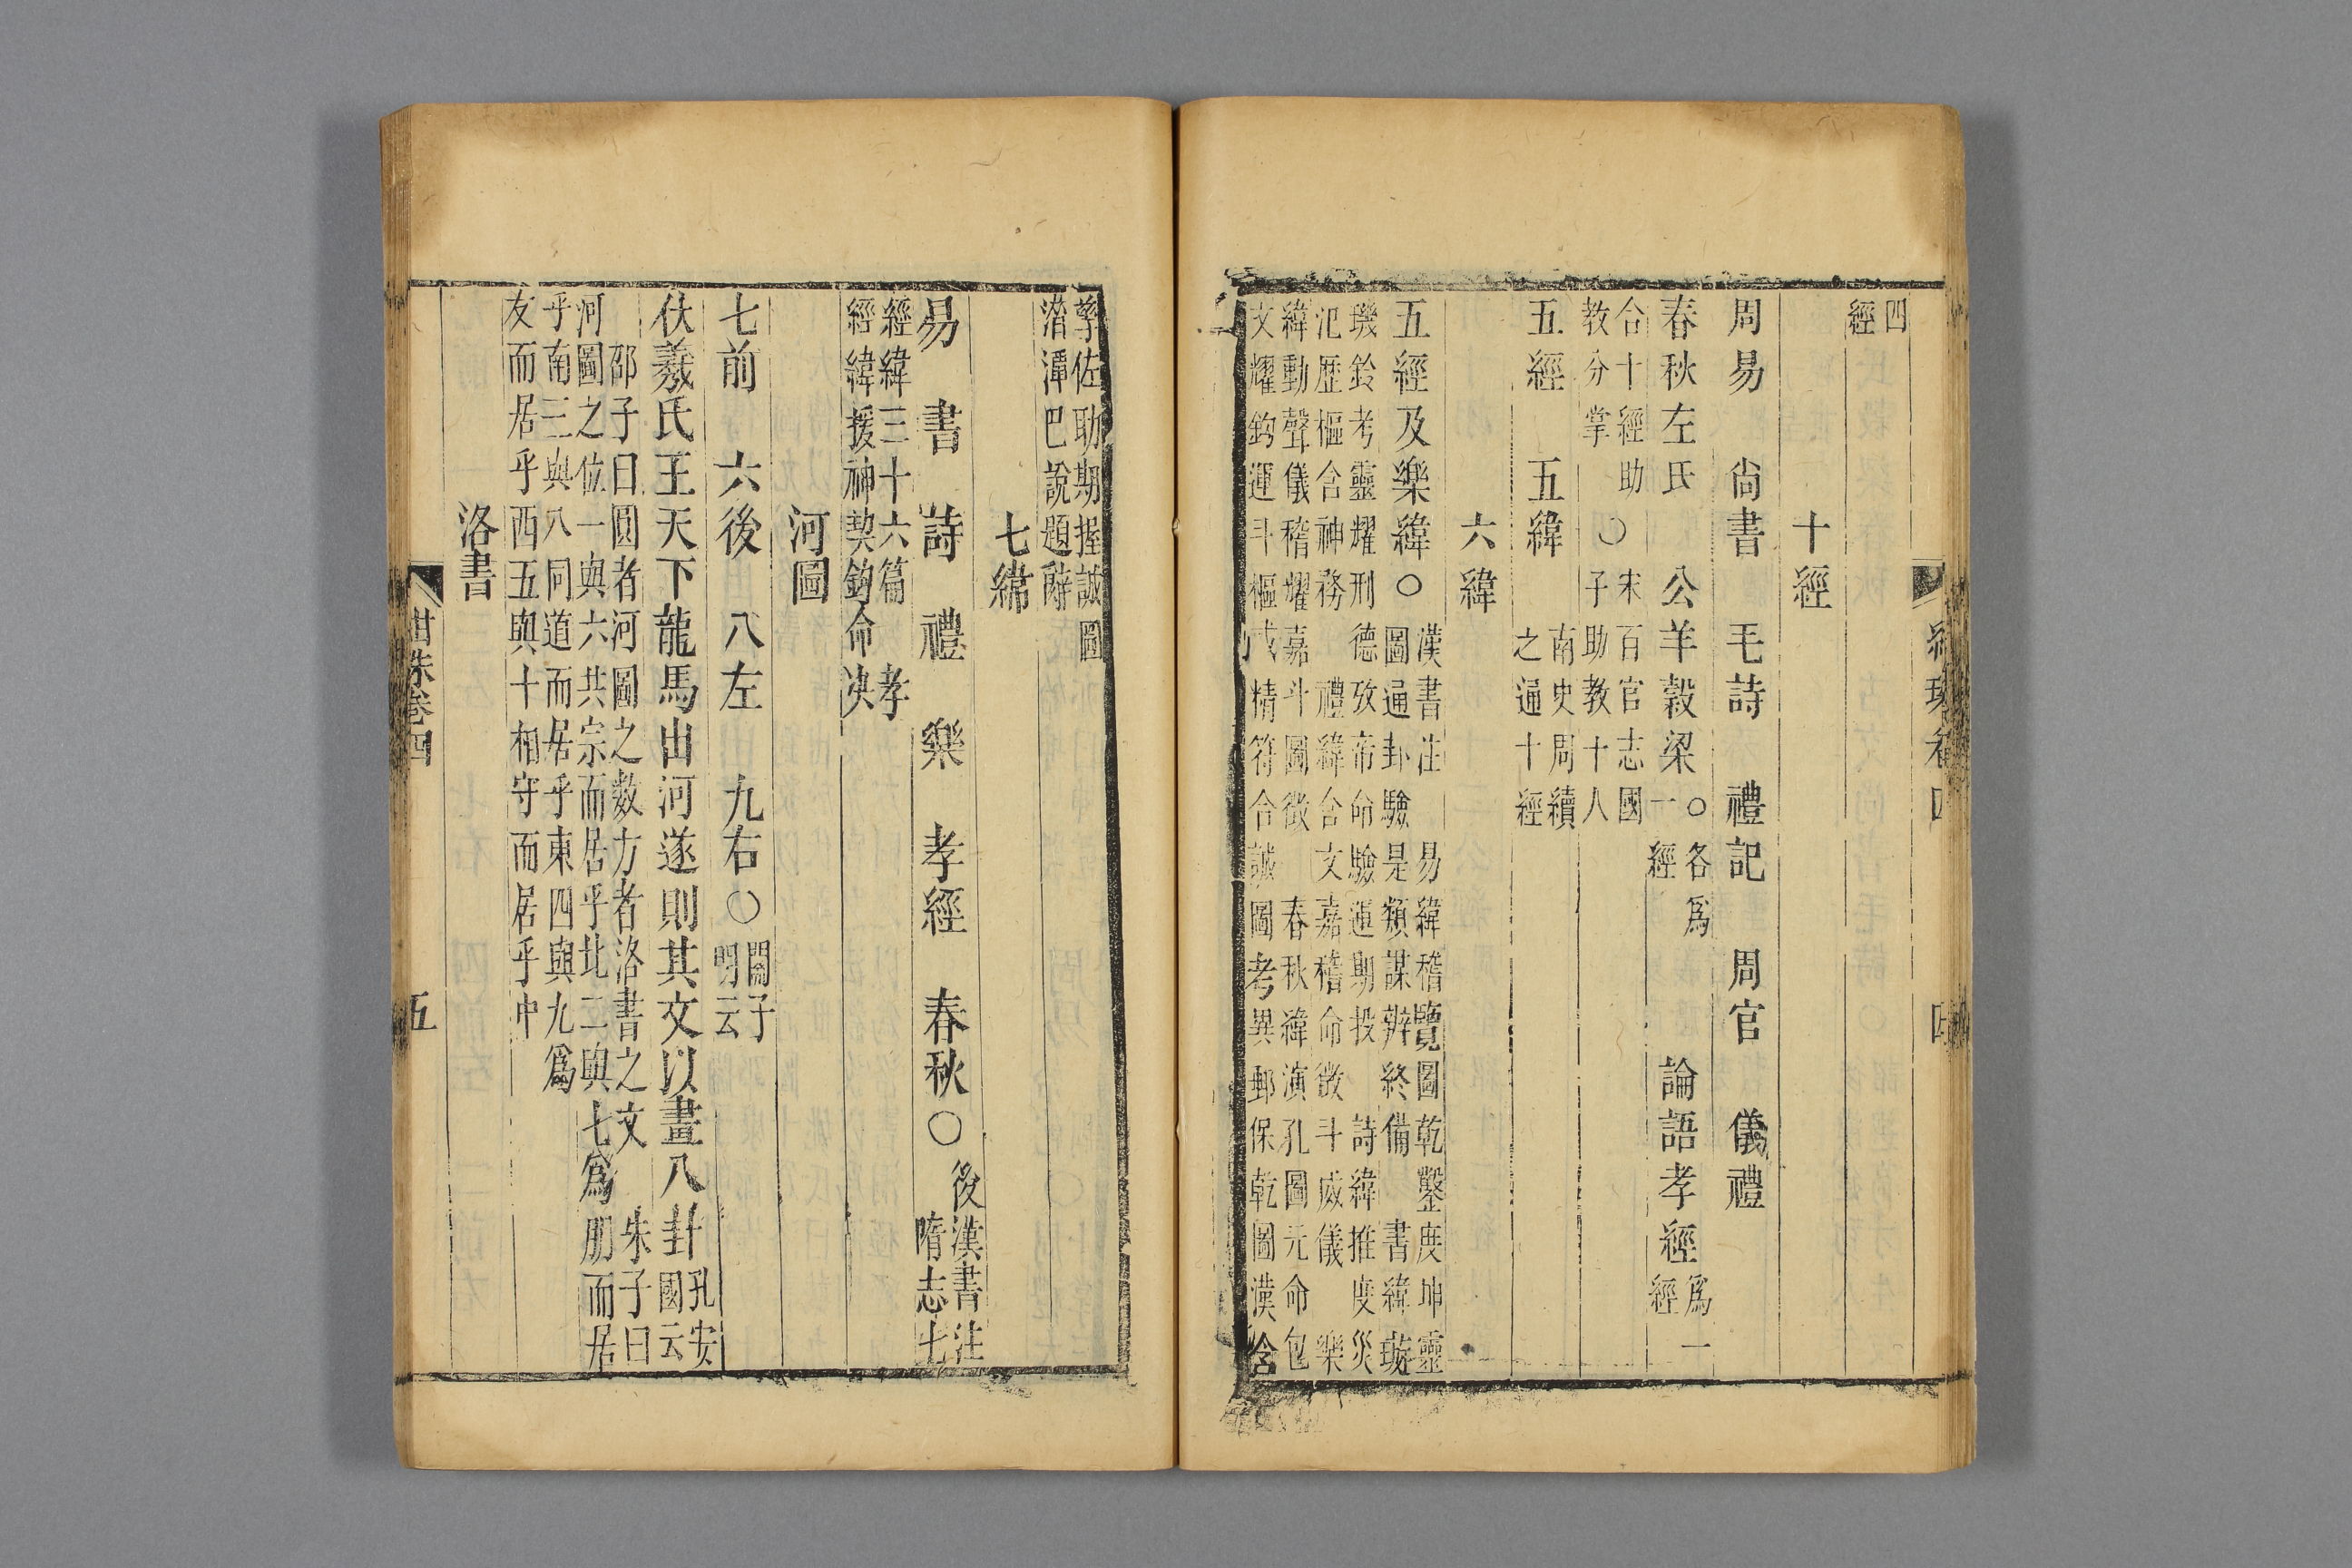 四
經
十經
周易 尙書 毛詩 禮記 周官 儀禮
春秋左氏 公羊穀梁○各爲一經 論語孝經爲一經
合十經助○宋百官志國
教分掌 子助教十八
五經 五緯南史周續
之通十經
六緯
五經及樂緯○漢書注 易緯稽覽圖乾鑿度坤靈
圖通卦驗是類謀辨終備 書緯璇
璣鈐考靈耀刑德攷帝命驗運期授 詩緯推度災
汜歷樞含神務 禮緯含文嘉稽命徵斗威儀 樂
緯動聲儀稽耀嘉斗圖徵 春秋緯演孔圖元命包
文耀鈎運斗樞 精符合誠圖考異郵保乾圖漢含
孳佐助期握誠圖
潛潭巴說題辭
七緯
易 書 詩 禮 樂 孝經 春秋○後漢書注
隋志七
經緯三十六篇 孝
經緯援神契鉤命決
河圖
七前 六後 八左 九右○關子
明云
伏羲氏王天下龍馬出河遂則其文以畫八卦孔安
國云
邵子曰圓者河圖之數方者洛書之文 朱子曰
河圖之位一與六共宗而居乎北二與七爲朋而居
乎南三與八同道而居乎東四與九爲
友而居乎西五與十相守而居乎中
洛書
紺珠卷四
五